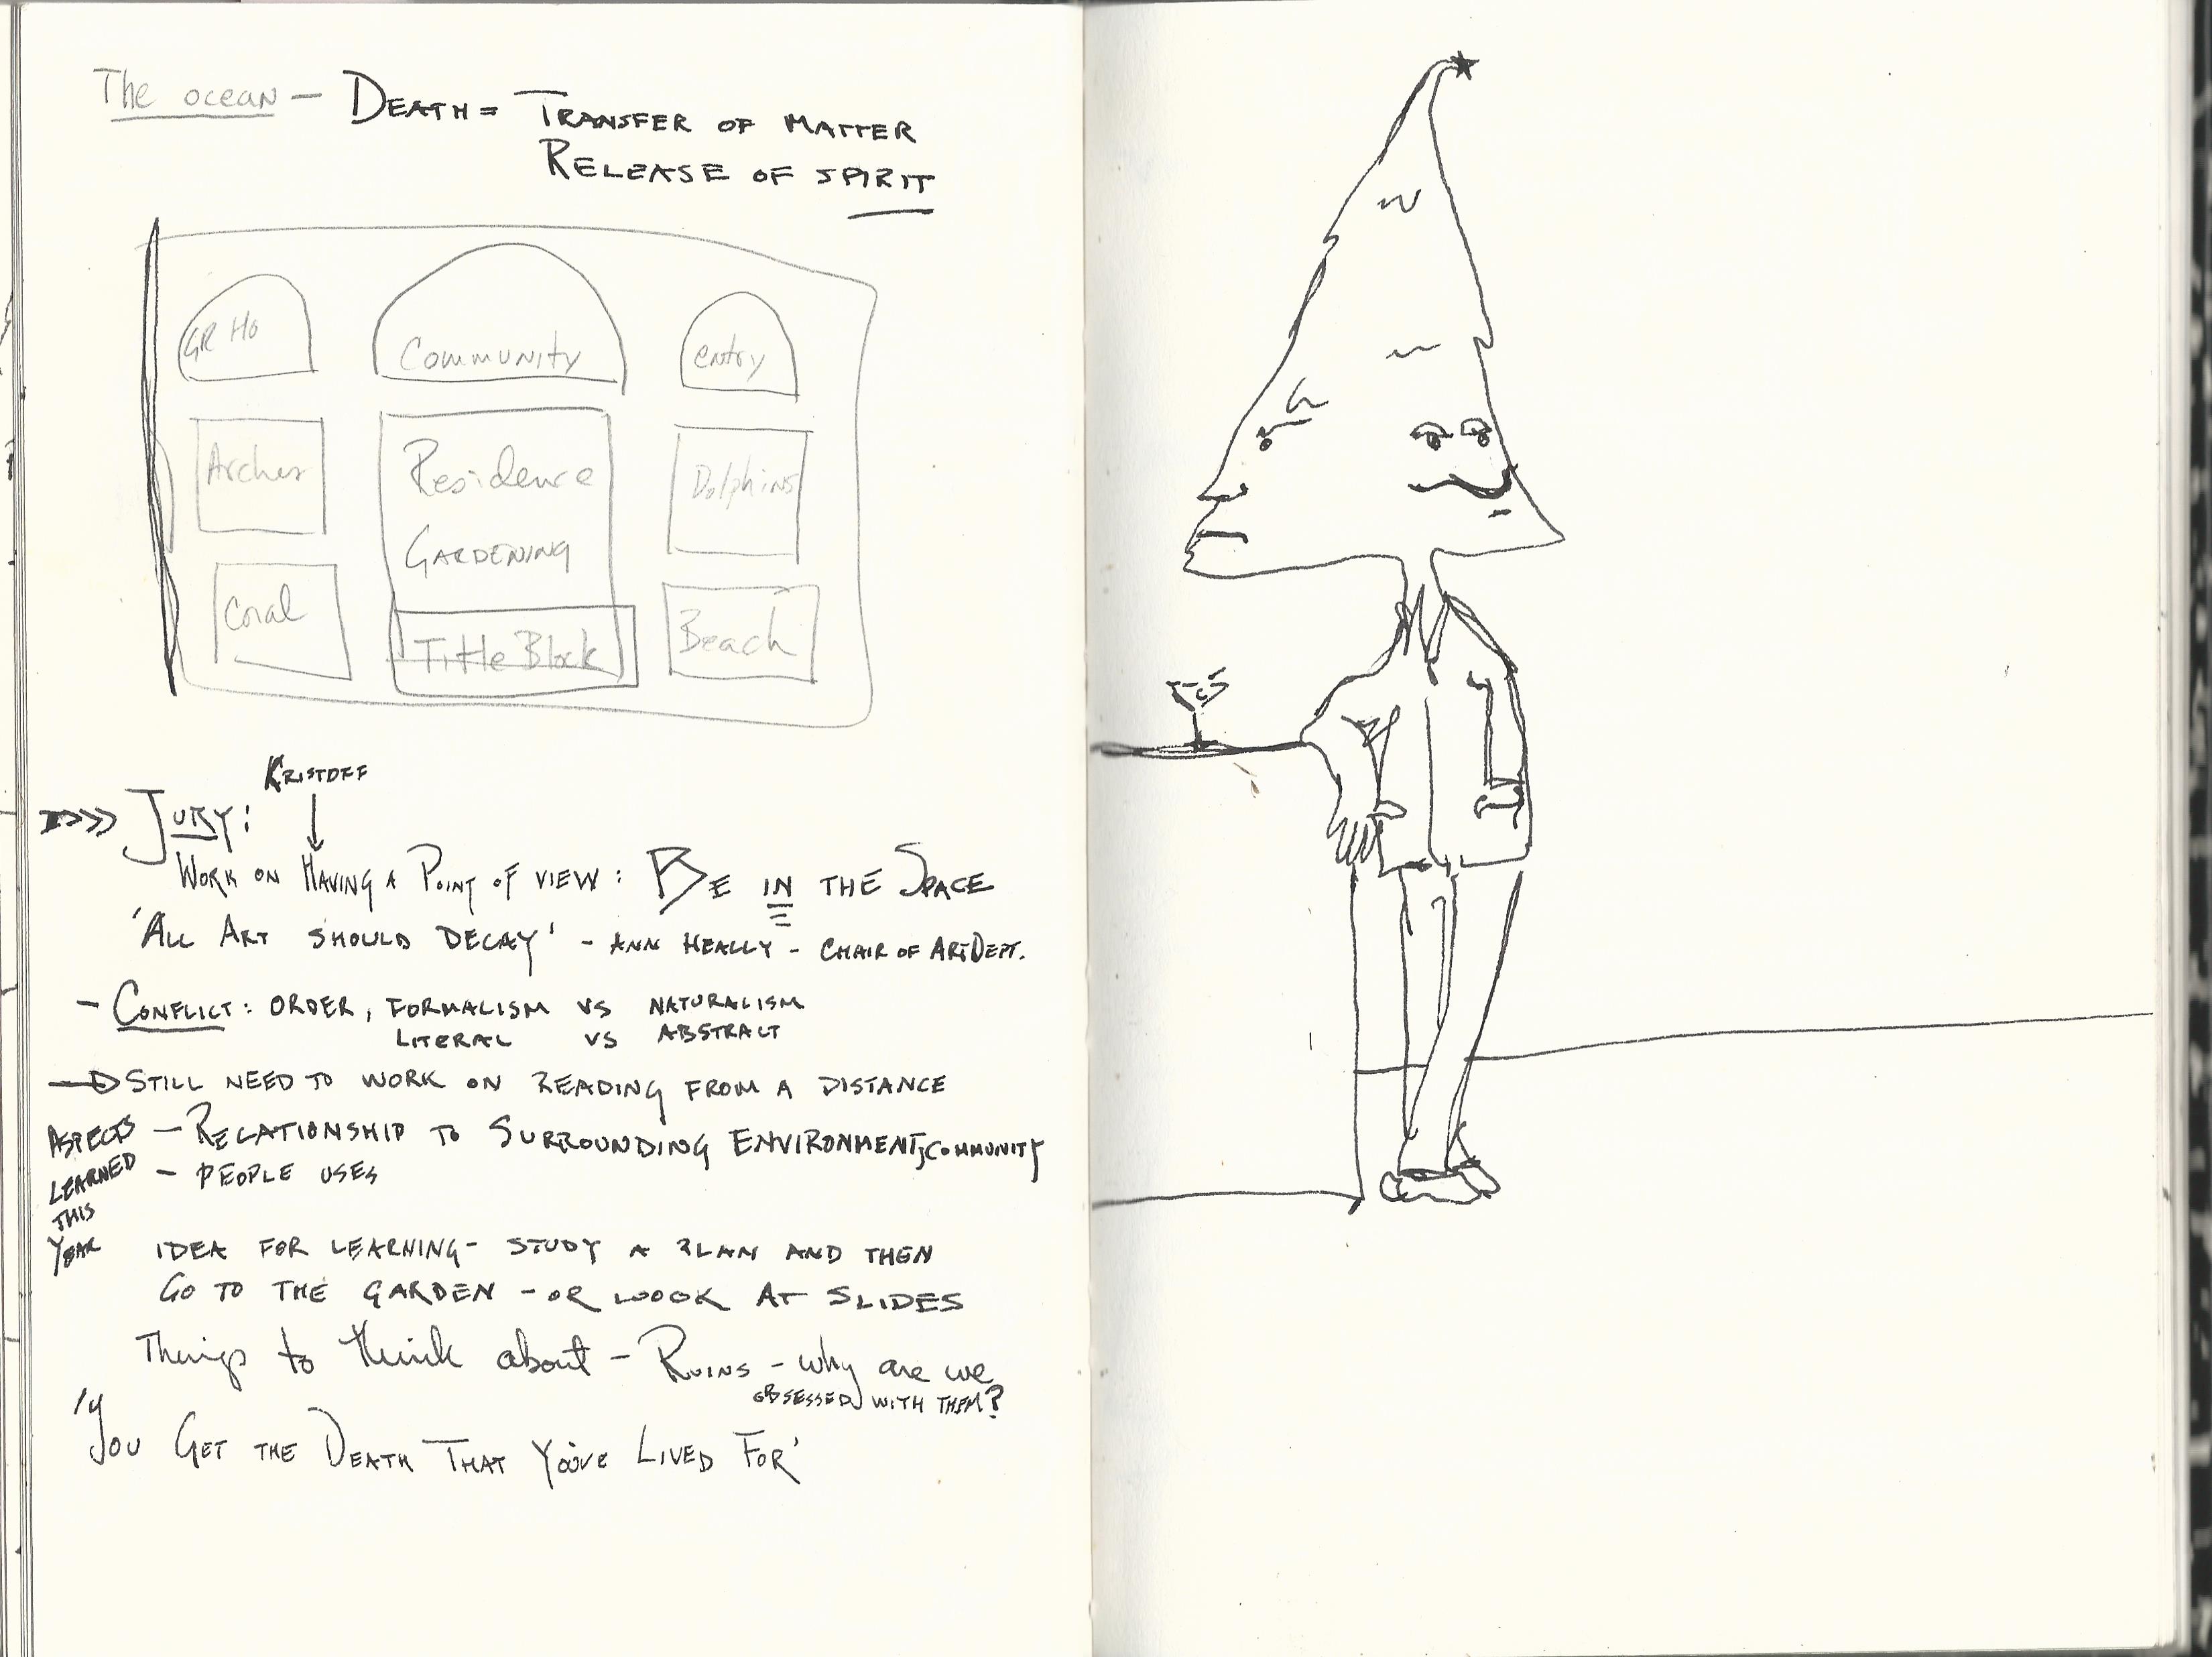 The ocean — DEATH = TRANSFER OF MATTER
RELEASE OF SPIRIT
GR Ho
Community
entry
Arches
Residence
GARDENING
Dolphins
Coral
Title Block
Beach
KRISTOFF
JURY:
WORK ON HAVING A POINT OF VIEW: BE IN THE SPACE
'ALL ART SHOULD DECAY' - ANN HEALLY - CHAIR OF ART DEPT.
- CONFLICT: ORDER, FORMALISM VS NATURALISM
LITERAL VS ABSTRACT
STILL NEED TO WORK ON READING FROM A DISTANCE
ASPECTS LEARNED THIS YEAR
- RELATIONSHIP TO SURROUNDING ENVIRONMENT, COMMUNITY
- PEOPLE USES
IDEA FOR LEARNING - STUDY A PLAN AND THEN
GO TO THE GARDEN - OR LOOOK AT SLIDES
Things to think about - RUINS - why are we
OBSESSED WITH THEM?
'YOU GET THE DEATH THAT YOU'VE LIVED FOR'